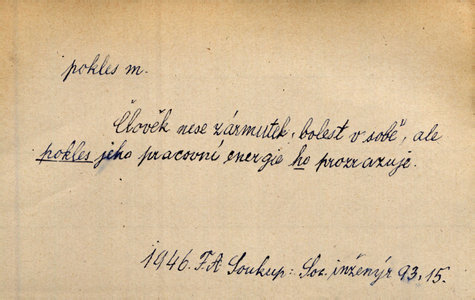 pokles m.
Člověk nese zármutek, „bolest v sobě“, ale
pokles jeho pracovní energie ho prozrazuje.
1946. F.A Soukup: Soz. inženýr 93, 15.